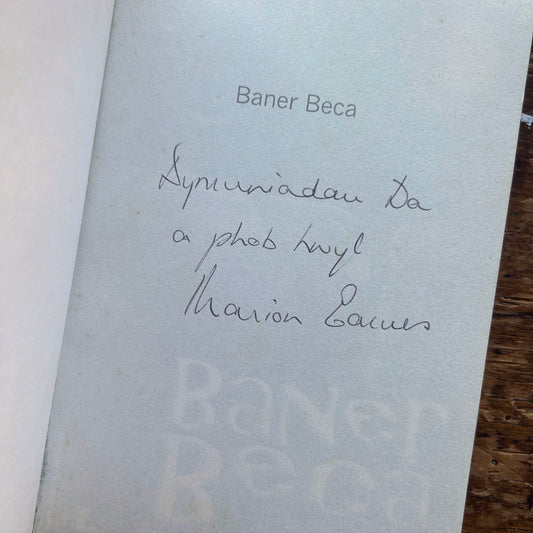 Baner Beca
Dymuniadau Da
a phob hwyl
Marion Eames
BaNer
Beca